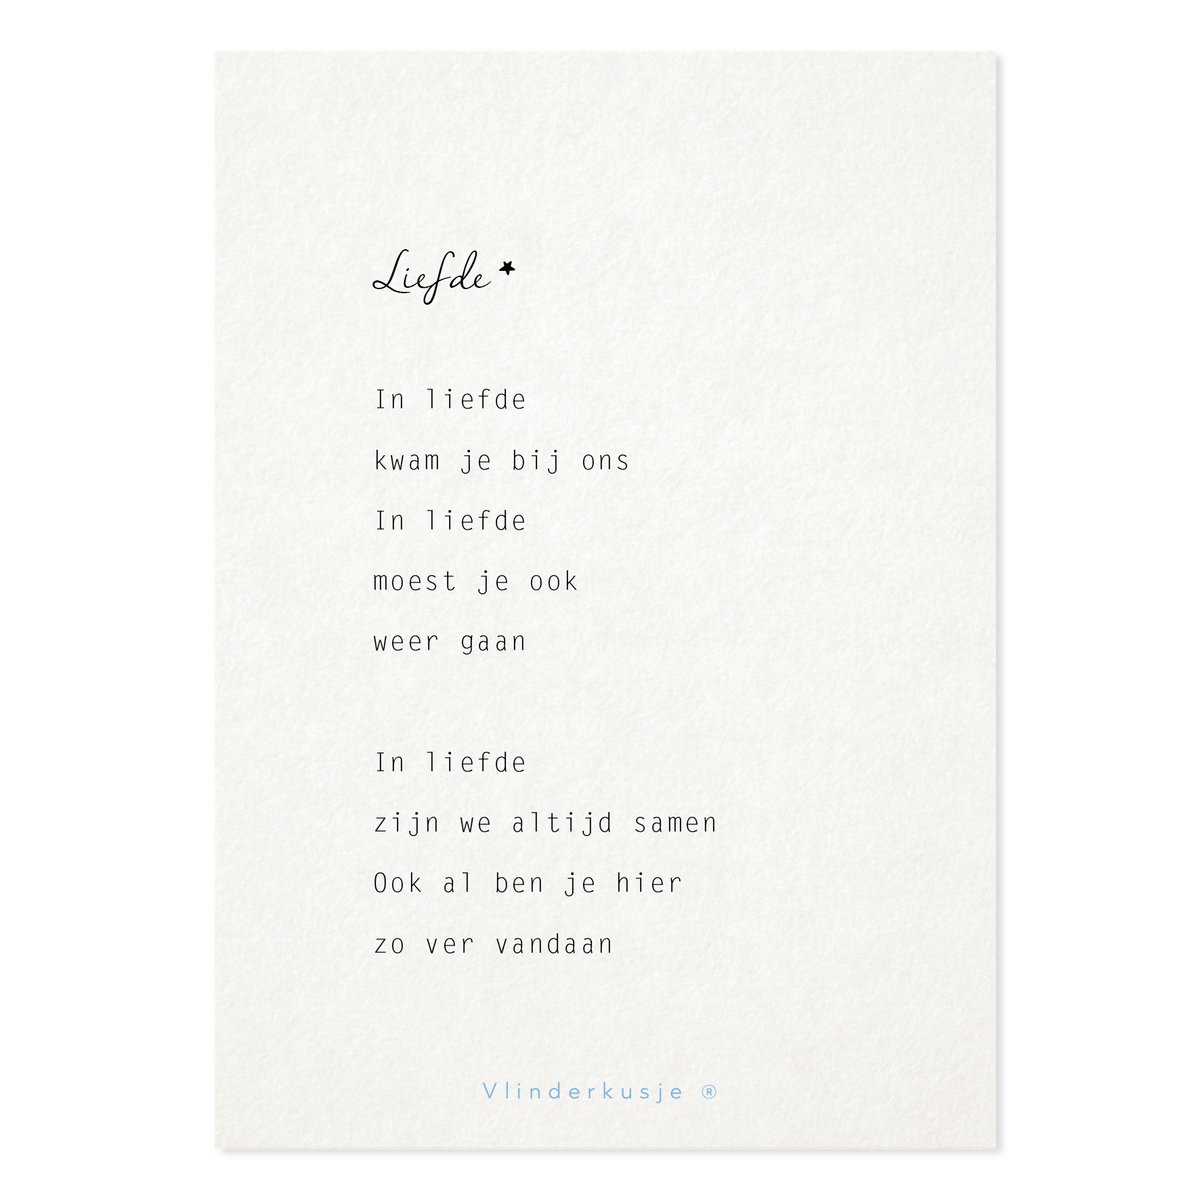 Liefde *
In liefde
kwam je bij ons
In liefde
moest je ook
weer gaan
In liefde
zijn we altijd samen
Ook al ben je hier
zo ver vandaan
Vlinderkusje ®